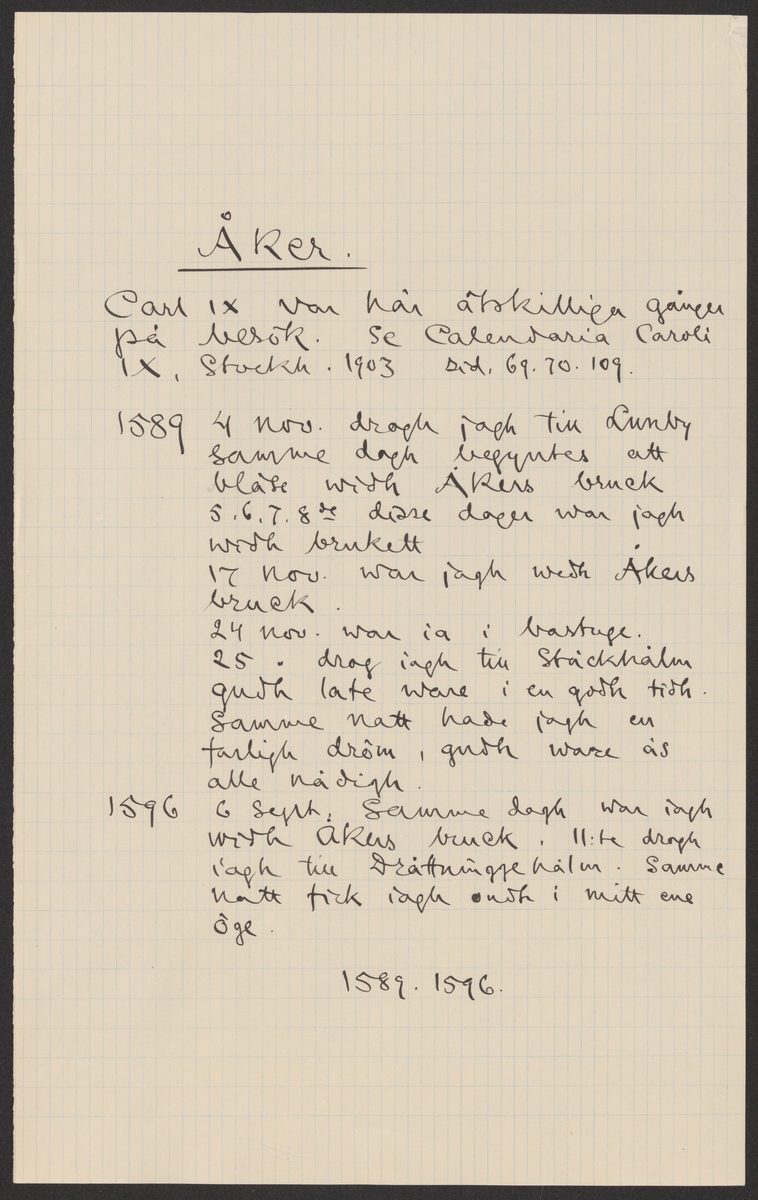 Åker.
Carl IX var här åtskilliga gånger
på besök. Se Calendaria Caroli
IX, Stockh. 1903 sid. 69. 70. 109.
1589 4 nov. drogh jagh till Lunby
samme dagh begyntes att
blåse widh Åkers bruck
5.6.7.8de disse dager war jagh
widh brukett
17 nov. war jagh wedh Åkers
bruck.
24 nov. war ia i bastuge.
25 „ drog iagh till Ståckhålm
gudh late ware i en godh tidh.
Samme natt hade jagh en
farligh dröm, gudh ware ås
alle nådigh.
1596 6 Sept. Samme dagh war iagh
widh Åkers bruck. 11:te drogh
iagh till Dråttninggehålm. Samme
natt fick iagh ondt i mitt ene
öge.
1589. 1596.